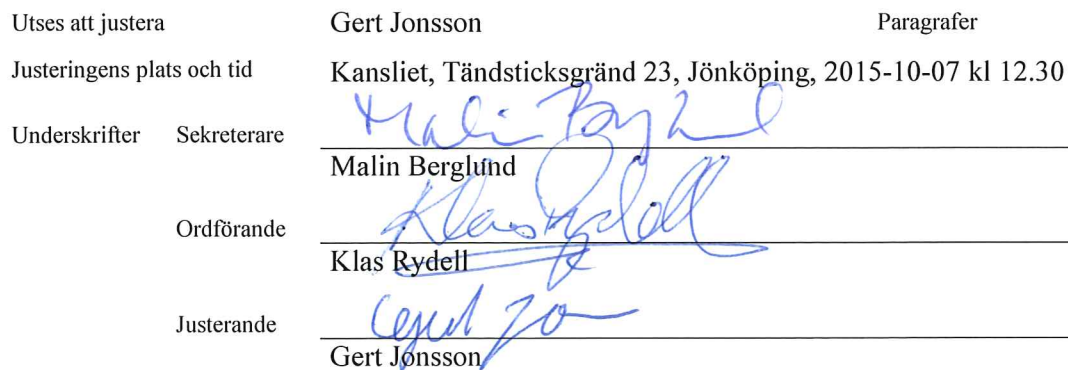 Utses att justera Gert Jonsson Paragrafer
Justeringens plats och tid Kansliet, Tändsticksgränd 23, Jönköping, 2015-10-07 kl 12.30
Malin Berglund
Underskrifter Sekreterare
Malin Berglund
Klas Rydell
Ordförande
Klas Rydell
Justerande
Gert Jonsson